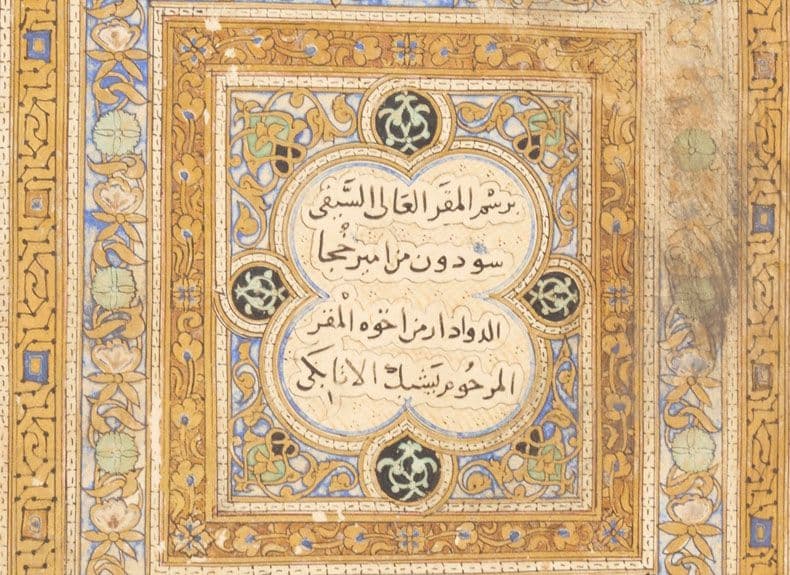 برسم المقر العالى السيفى
سودون من امير خجا
الدوادار من اخوه المقر
المرحوم يشبك الاتابكى